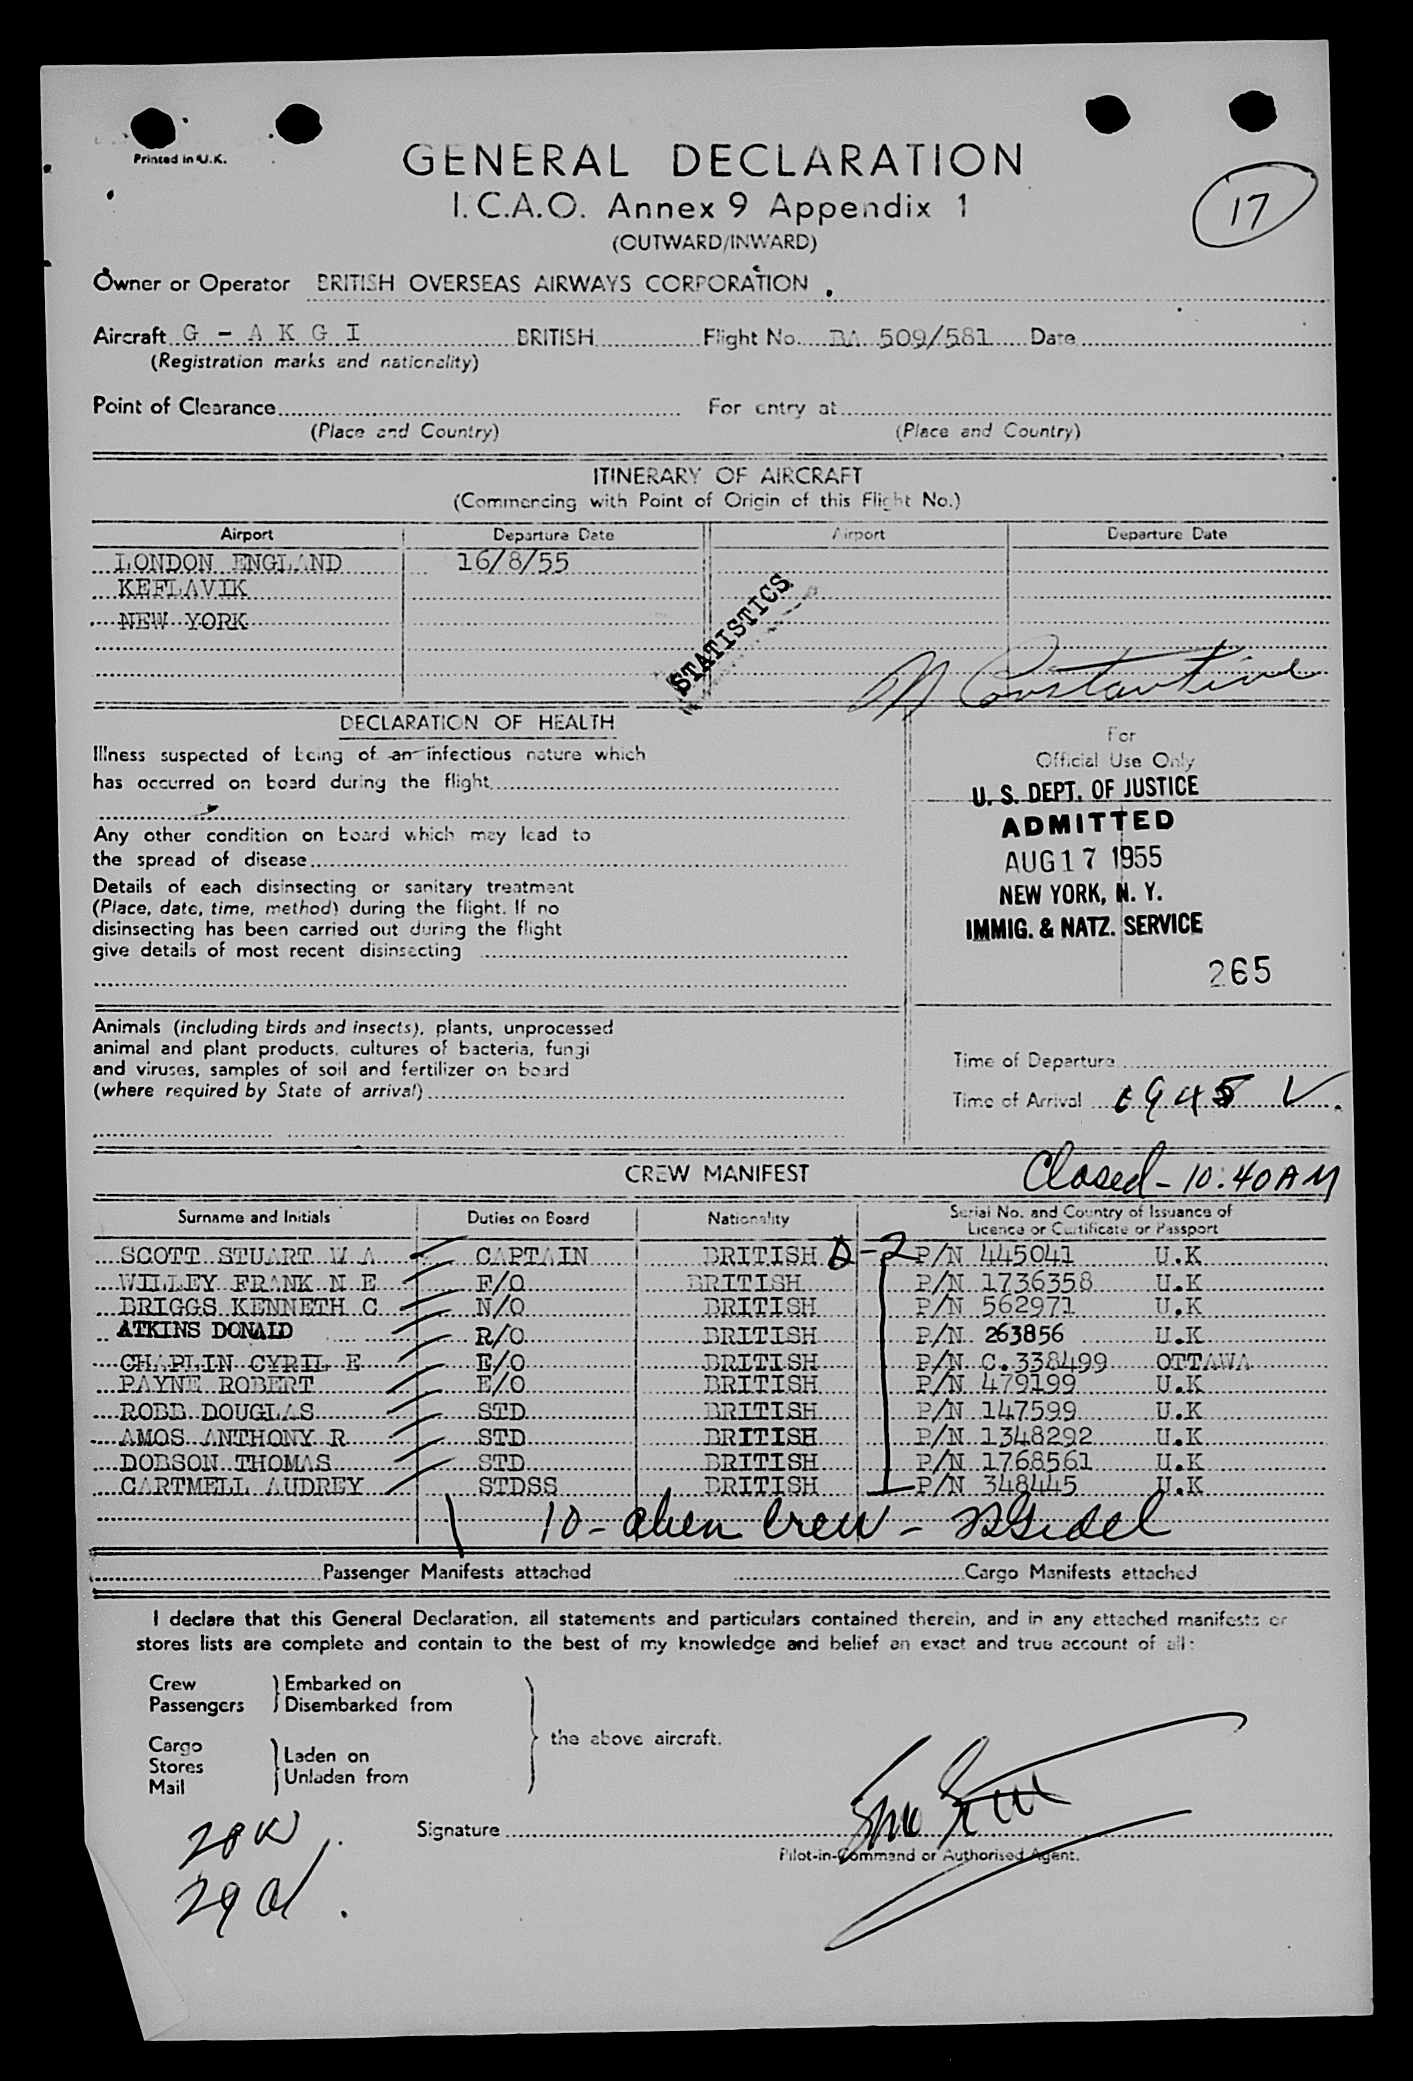 Printed in U.K.
GENERAL DECLARATION
I.C.A.O. Annex 9 Appendix 1
17
(OUTWARD/INWARD)
Owner or Operator BRITISH OVERSEAS AIRWAYS CORPORATION.
Aircraft G - A K G I BRITISH Flight No. BA 509/581 Date
(Registration marks and nationality)
Point of Clearance For entry at
(Place and Country) (Place and Country)
ITINERARY OF AIRCRAFT
(Commencing with Point of Origin of this Flight No.)
Airport Departure Date Airport Departure Date
LONDON ENGLAND 16/8/55
KEFLAVIK
NEW YORK
STATISTICS
Constantine
DECLARATION OF HEALTH
Illness suspected of being of an infectious nature which
has occurred on board during the flight
Any other condition on board which may lead to
the spread of disease
Details of each disinsecting or sanitary treatment
(Place, date, time, method) during the flight. If no
disinsecting has been carried out during the flight
give details of most recent disinsecting
For
Official Use Only
U. S. DEPT. OF JUSTICE
ADMITTED
AUG 17 1955
NEW YORK, N. Y.
IMMIG. & NATZ. SERVICE
265
Animals (including birds and insects), plants, unprocessed
animal and plant products, cultures of bacteria, fungi
and viruses, samples of soil and fertilizer on board
(where required by State of arrival)
Time of Departure
Time of Arrival 0945
Closed - 10:40 AM
CREW MANIFEST
Surname and Initials Duties on Board Nationality Serial No. and Country of Issuance of Licence or Certificate or Passport
SCOTT STUART W A CAPTAIN BRITISH D-2 P/N 445041 U.K
WILLEY FRANK N E F/O BRITISH P/N 1736358 U.K
BRIGGS KENNETH C N/O BRITISH P/N 562971 U.K
ATKINS DONALD R/O BRITISH P/N 263856 U.K
CHAPLIN CYRIL E E/O BRITISH P/N C.338499 OTTAWA
PAYNE ROBERT E/O BRITISH P/N 479199 U.K
ROBB DOUGLAS STD BRITISH P/N 147599 U.K
AMOS ANTHONY R STD BRITISH P/N 1348292 U.K
DOBSON THOMAS STD BRITISH P/N 1768561 U.K
CARTMELL AUDREY STDSS BRITISH P/N 348445 U.K
10 - alien Crew -
Passenger Manifests attached Cargo Manifests attached
I declare that this General Declaration, all statements and particulars contained therein, and in any attached manifests or
stores lists are complete and contain to the best of my knowledge and belief an exact and true account of all:
Crew
Passengers
Embarked on
Disembarked from
Cargo
Stores
Mail
Laden on
Unladen from
the above aircraft.
Signature
Pilot-in-Command or Authorised Agent.